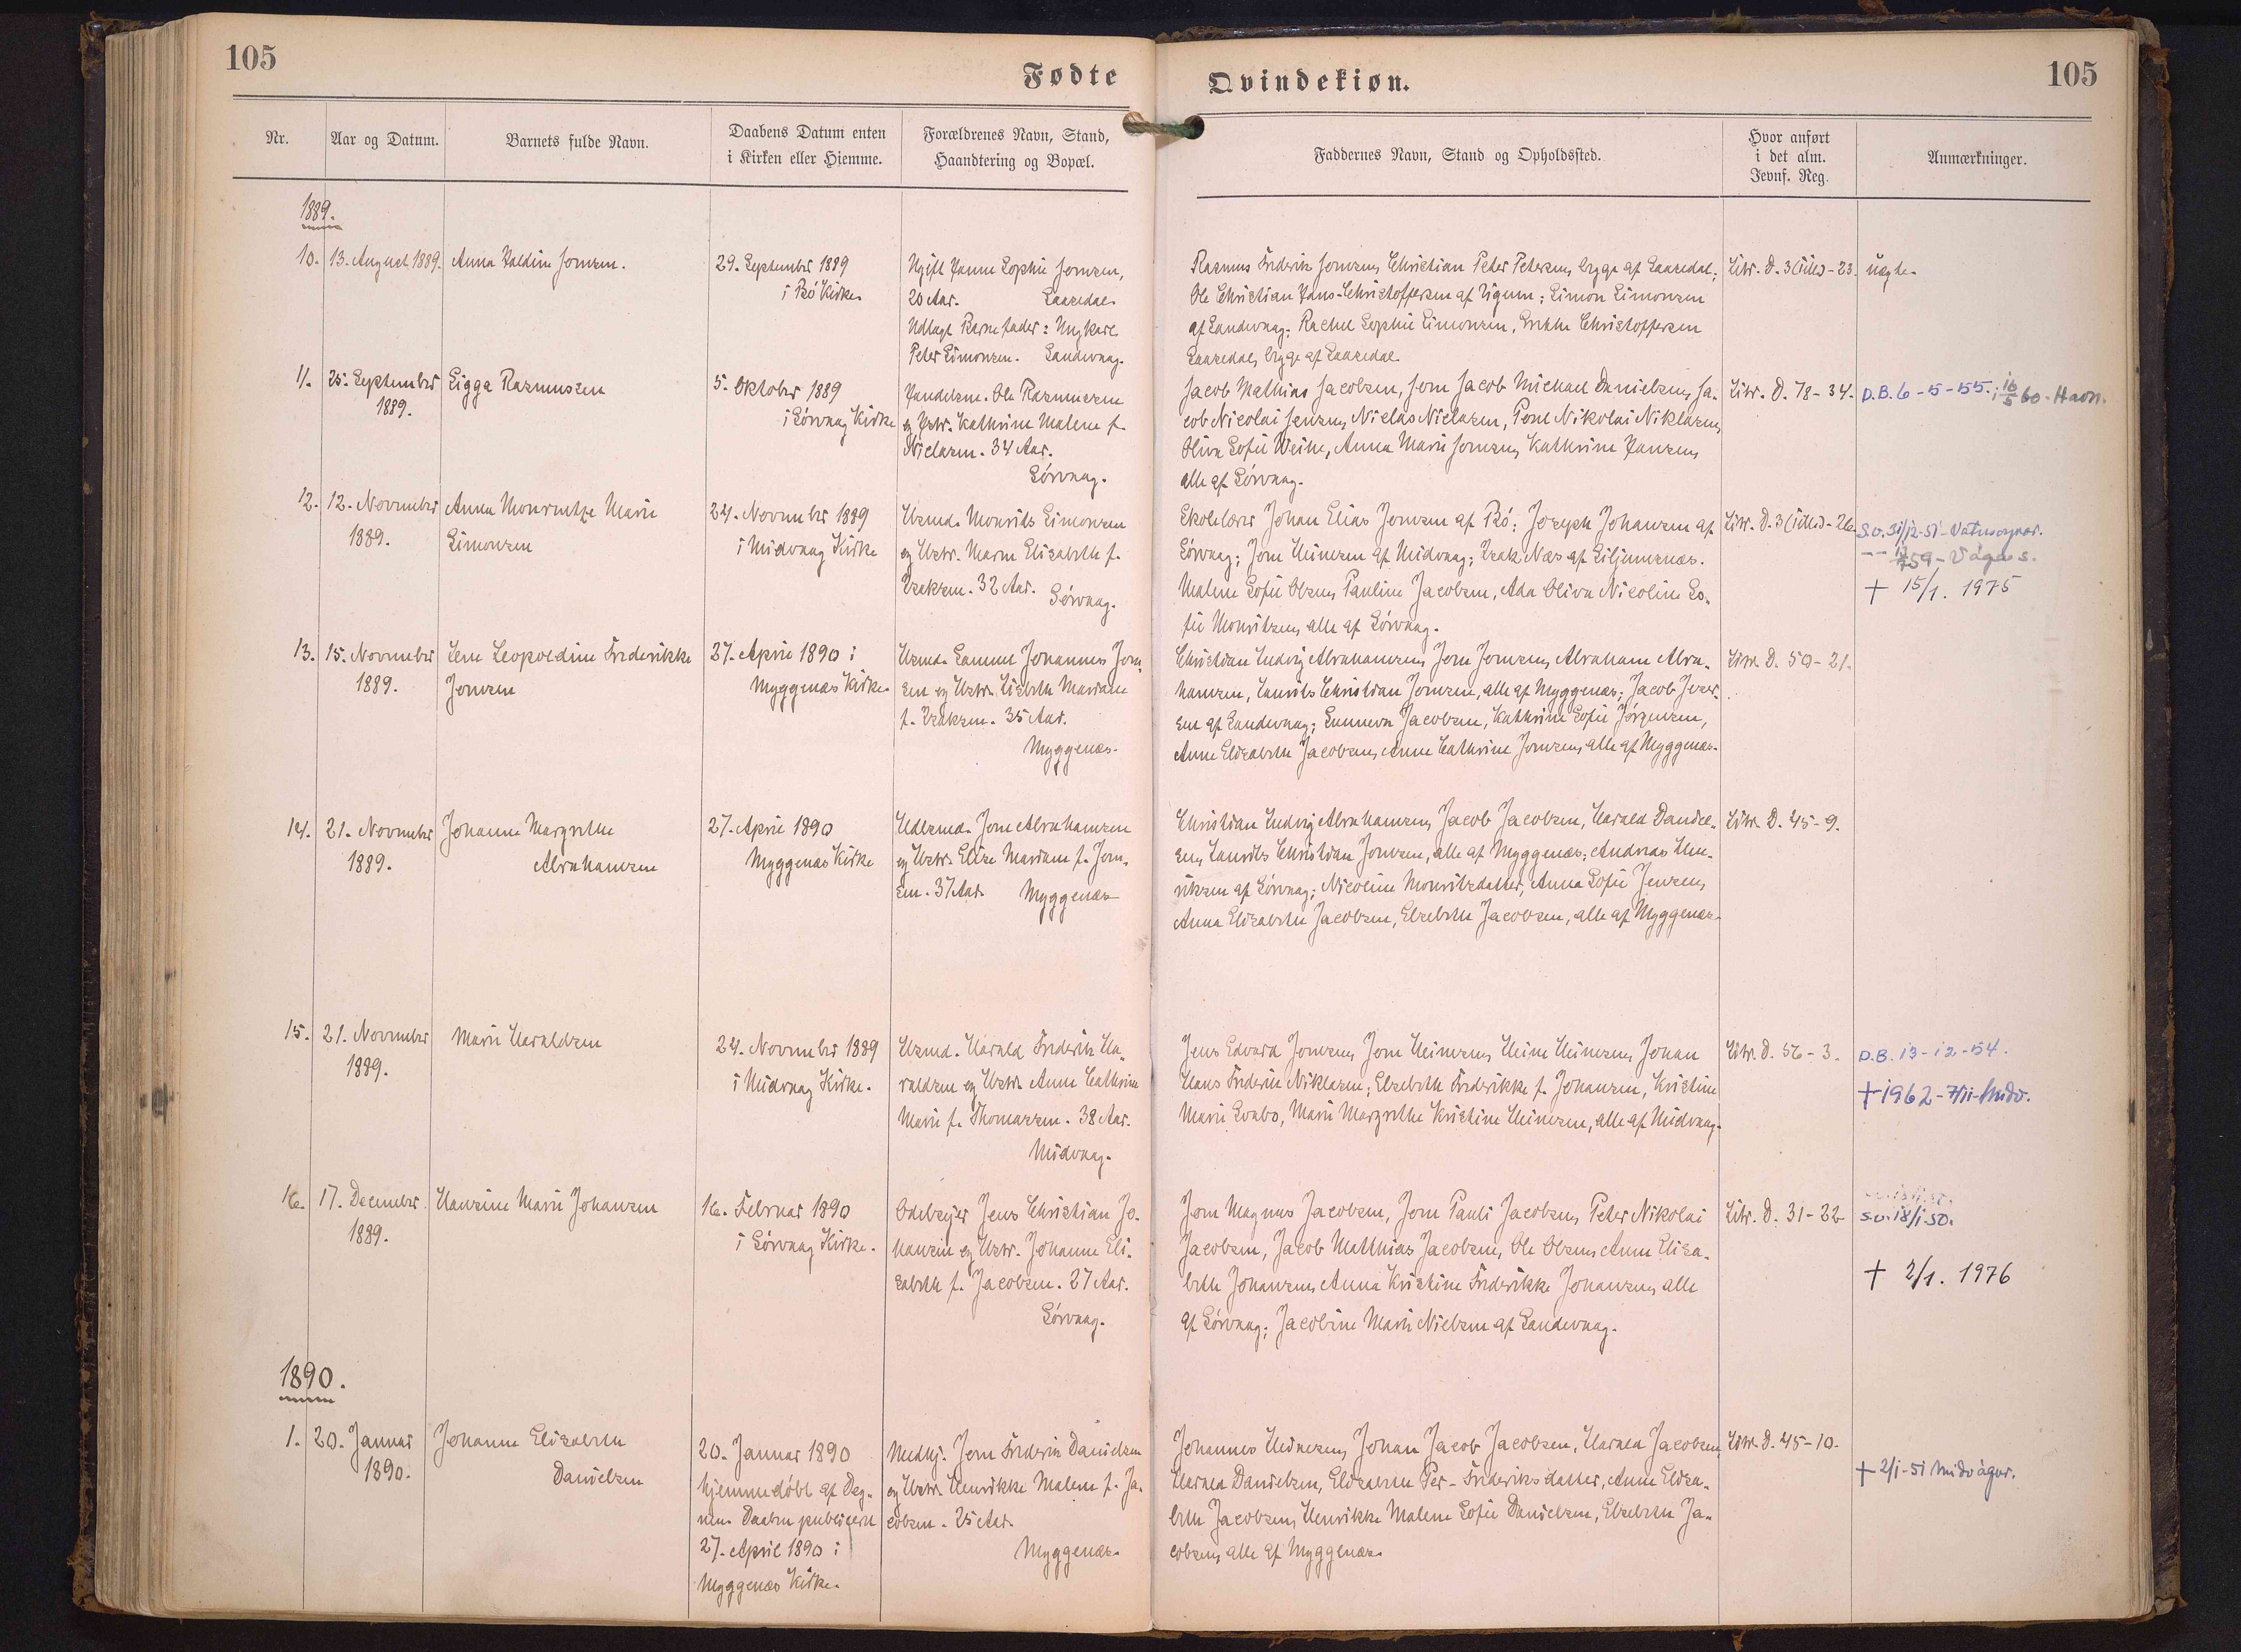 105
Fødte
Qvindekiøn.
105
Nr.
Aar og Datum.
Barnets fulde Navn.
Daabens Datum enten
i Kirken eller Hiemme.
Forældrenes Navn, Stand,
Haandtering og Bopæl.
Faddernes Navn, Stand og Opholdssted.
Hvor anført
i det alm.
Jevnf. Reg.
Anmærkninger.
1889.
10.
13. August 1889.
Anna Jonsen.
29. September 1889
i Bö Kirke
Ugift Hanne Sophie Jonsen,
20 Aar.
Udlagt Barnefader: Ungkarl
Peter Simonsen. Sandevaag.
Rasmus Frederik Jonsen, Christian Peter Petersen, begge af
Ole Christian Hans-Christoffersen af; Simon Simonsen
af Sandevaag; Rachel Sophie Simonsen, Christoffersen
begge af
Litr. D. 3 - 23.
uægte.
11.
25. September
1889.
Sigga Rasmussen
5. Oktober 1889
i Sörvaag Kirke
Handelsm. Ole Rasmussen
og Hstr. Kathrine Malene f.
Niclasen. 34 Aar.
Sörvaag.
Jacob Mathias Jacobsen, Jone Jacob Michael Danielsen, Ja-
cob Nicolai Jensen, Niclas Niclasen, Poul Nikolai Niklasen,
Oliva Sofie Weihe, Anna Marie Jonsen, Kathrine Hansen,
alle af Sörvaag.
Litr. D. 78-34.
D.B. 6-5-55; 16/5 60. Havn.
12.
12. November
1889.
Anna Mouritze Marie
Simonsen
24. November 1889
i Midvaag Kirke
Husmd. Mourits Simonsen
og Hstr. Maren Elisabeth f.
Isaksen. 32 Aar.
Sörvaag.
Skolelærer Johan Elias Jonsen af Bö; Joseph Johansen af
Sörvaag; Jone Heinesen af Midvaag; Isak Næs af
Malene Sofie Olsen, Pauline Jacobsen, Ada Oliva Nicoline So-
fie Mouritsen, alle af Sörvaag.
Litr. D. 3 - 26.
S.v. 31/12-51 - Vatnsoyrar.
59 - Vágur s.
† 15/1. 1975
13.
15. November
1889.
Lene Leopoldine Frederikke
Jonsen
27. April 1890 i
Myggenæs Kirke
Husmd. Samuel Johannes Jon-
sen og Hstr. Elsebeth Mariane
f. Isaksen. 35 Aar.
Myggenæs.
Christian Ludvig Abrahamsen, Jone Jonsen, Abraham Abra-
hamsen, Laurits Christian Jonsen, alle af Myggenæs; Jacob
sen af Sandevaag; Sunneva Jacobsen, Kathrine Sofie Jörgensen,
Anne Elisabeth Jacobsen, Anne Cathrine Jonsen, alle af Myggenæs.
Litr. D. 50-21.
14.
21. November
1889.
Johanne Margrethe
Abrahamsen
27. April 1890
Myggenæs Kirke
Jone Abrahamsen
og Hstr. Elise Mariane f. Jon-
sen. 37 Aar. Myggenæs
Christian Ludvig Abrahamsen, Jacob Jacobsen, Harald Daniel-
sen, Laurits Christian Jonsen, alle af Myggenæs; Andreas Hen-
riksen af Sörvaag; Nicoline Mouritsdatter, Anna Sofie Jensen,
Anna Elisabeth Jacobsen, Elsebeth Jacobsen, alle af Myggenæs.
Litr. D. 45-9.
15.
21. November
1889.
Marie Haraldsen
24. November 1889
i Midvaag Kirke.
Husmd. Harald Frederik Ha-
raldsen og Hstr. Anne Cathrine
Marie f. Thomassen. 38 Aar.
Midvaag.
Jens Edvard Jonsen, Jone Heinesen, Heine Heinesen, Johan
Hans Frederik Niklasen; Elsebeth Frederikke f. Johansen, Kristine
Marie Svabo, Marie Margrethe Kristine Heinesen, alle af Midvaag.
Litr. D. 56-3.
D.B. 13-12-54.
† 1962 - 7/11 - Midv.
16.
17. December
1889.
Hansine Marie Johansen
16. Februar 1890
i Sörvaag Kirke.
Odelsejer Jens Christian Jo-
hansen og Hstr. Johanne Eli-
sabeth f. Jacobsen. 27 Aar.
Sörvaag.
Jone Magnus Jacobsen, Jone Pauli Jacobsen, Peter Nikolai
Jacobsen, Jacob Matthias Jacobsen, Ole Olsen, Anne Elisa-
beth Johansen, Anna Kristine Frederikke Johansen, alle
af Sörvaag; Jacobine Marie Nielsen af Sandevaag.
Litr. D. 31-22
S.v. 18/1 50.
† 2/1. 1976
1890.
1.
20. Januar
1890.
Johanne Elisabeth
Danielsen
20. Januar 1890
hjemmedöbt af Deg-
nen. Daaben publiceret
27. April 1890 i
Myggenæs Kirke.
Medhj. Jone Frederik Danielsen
og Hstr. Henrikke Malene f. Ja-
cobsen. 25 Aar.
Myggenæs.
Johannes Heinesen, Johan Jacob Jacobsen, Harald Jacobsen,
Harald Danielsen, Elisabeth Per-Frederiksdatter, Anne Elisa-
beth Jacobsen, Henrikke Malene Sofie Danielsen, Elsebeth Ja-
cobsen, alle af Myggenæs.
Litr. D. 45-10.
† 2/1-51 Midvágur.